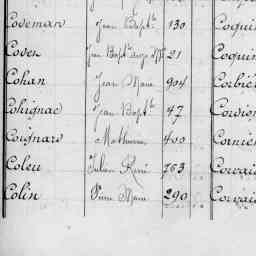 Coveman Jean Bapt.te 130 Coquin
Coven Jean Bapt.te 21 Coquin
Cohan Jean Marie 904 Corbiè
Cohignac Jean Bapt.te 47
Coignard Mathurin 400 Cornie
Coleu Julien René 763 Corvais
Colin Pierre Marie 290 Corvais